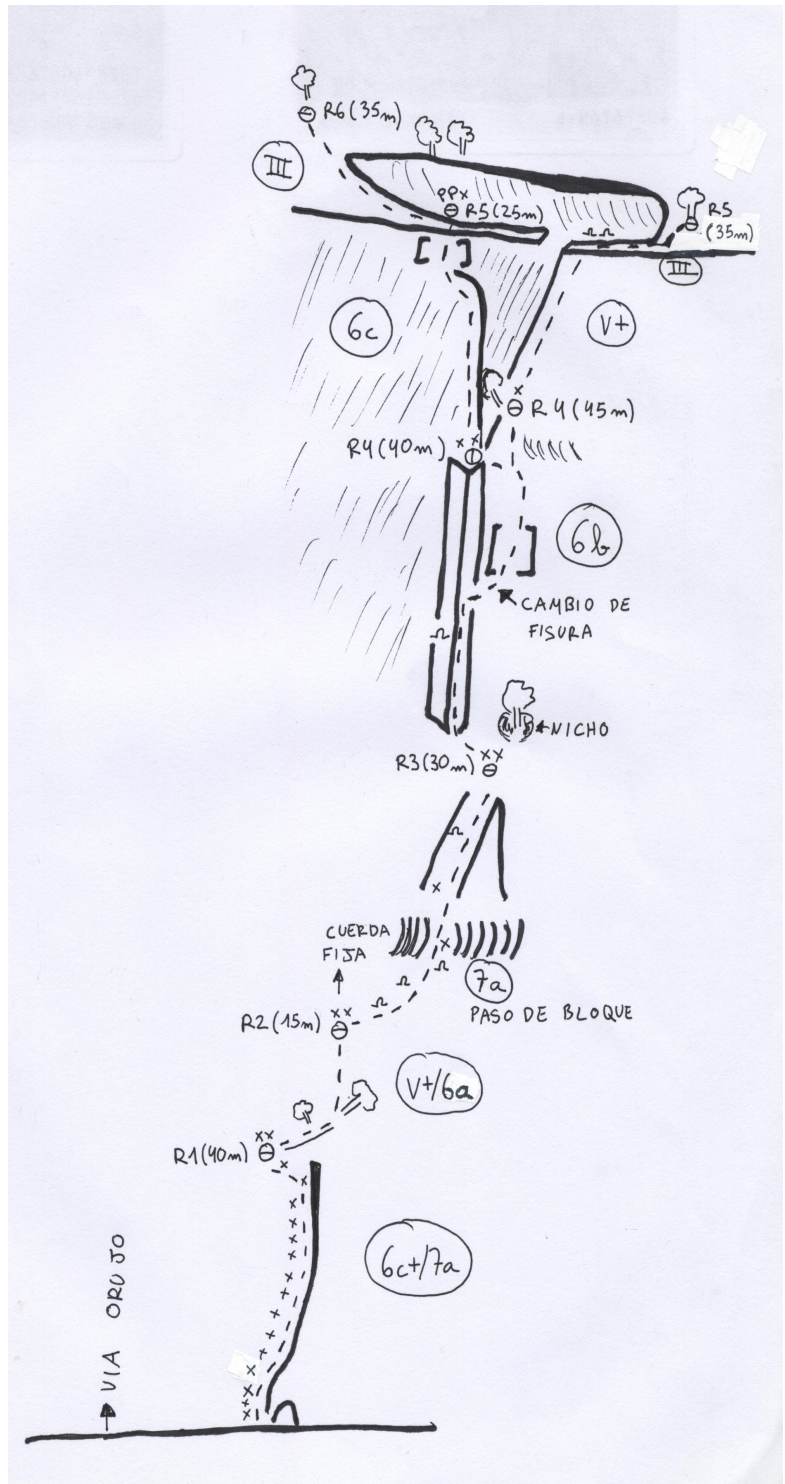 R6 (35m)
III
PPX
R5 (25m)
R5
(35m)
III
6c
V+
R4 (45m)
R4 (40m)
6b
CAMBIO DE
FISURA
NICHO
R3 (30m)
CUERDA
FIJA
7a
PASO DE BLOQUE
R2 (15m)
V+/6a
R1 (40m)
6c+/7a
VIA ORUJO